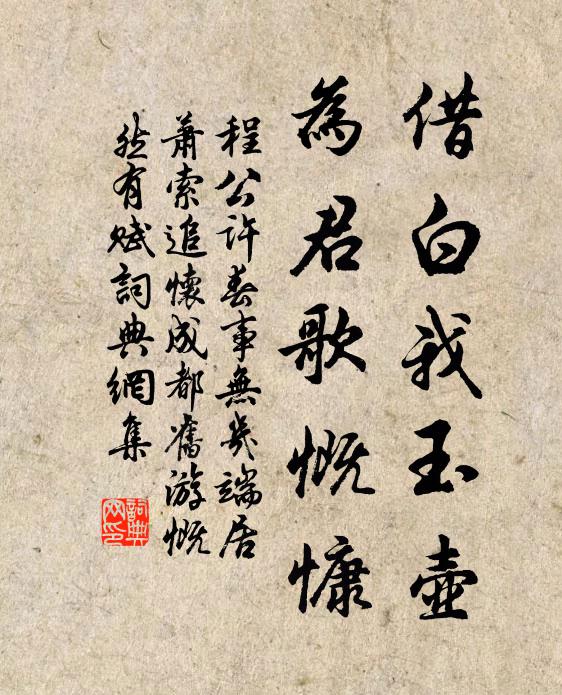 借白我玉壺
為君歌慨慷
程公許春事無幾端居
蕭索追懷成都舊游慨
然有賦詞典網集
詞典
网印